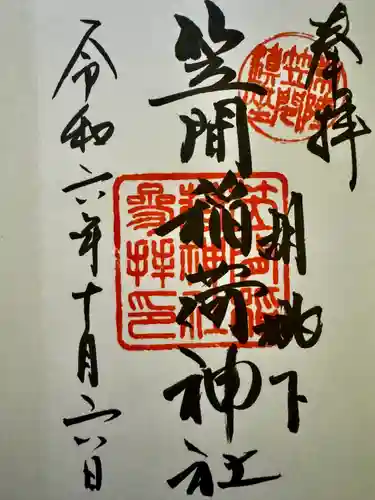 奉拝
胡桃下
笠間稲荷神社
令和六年十月六日
笠間稲
荷神社
参拝印